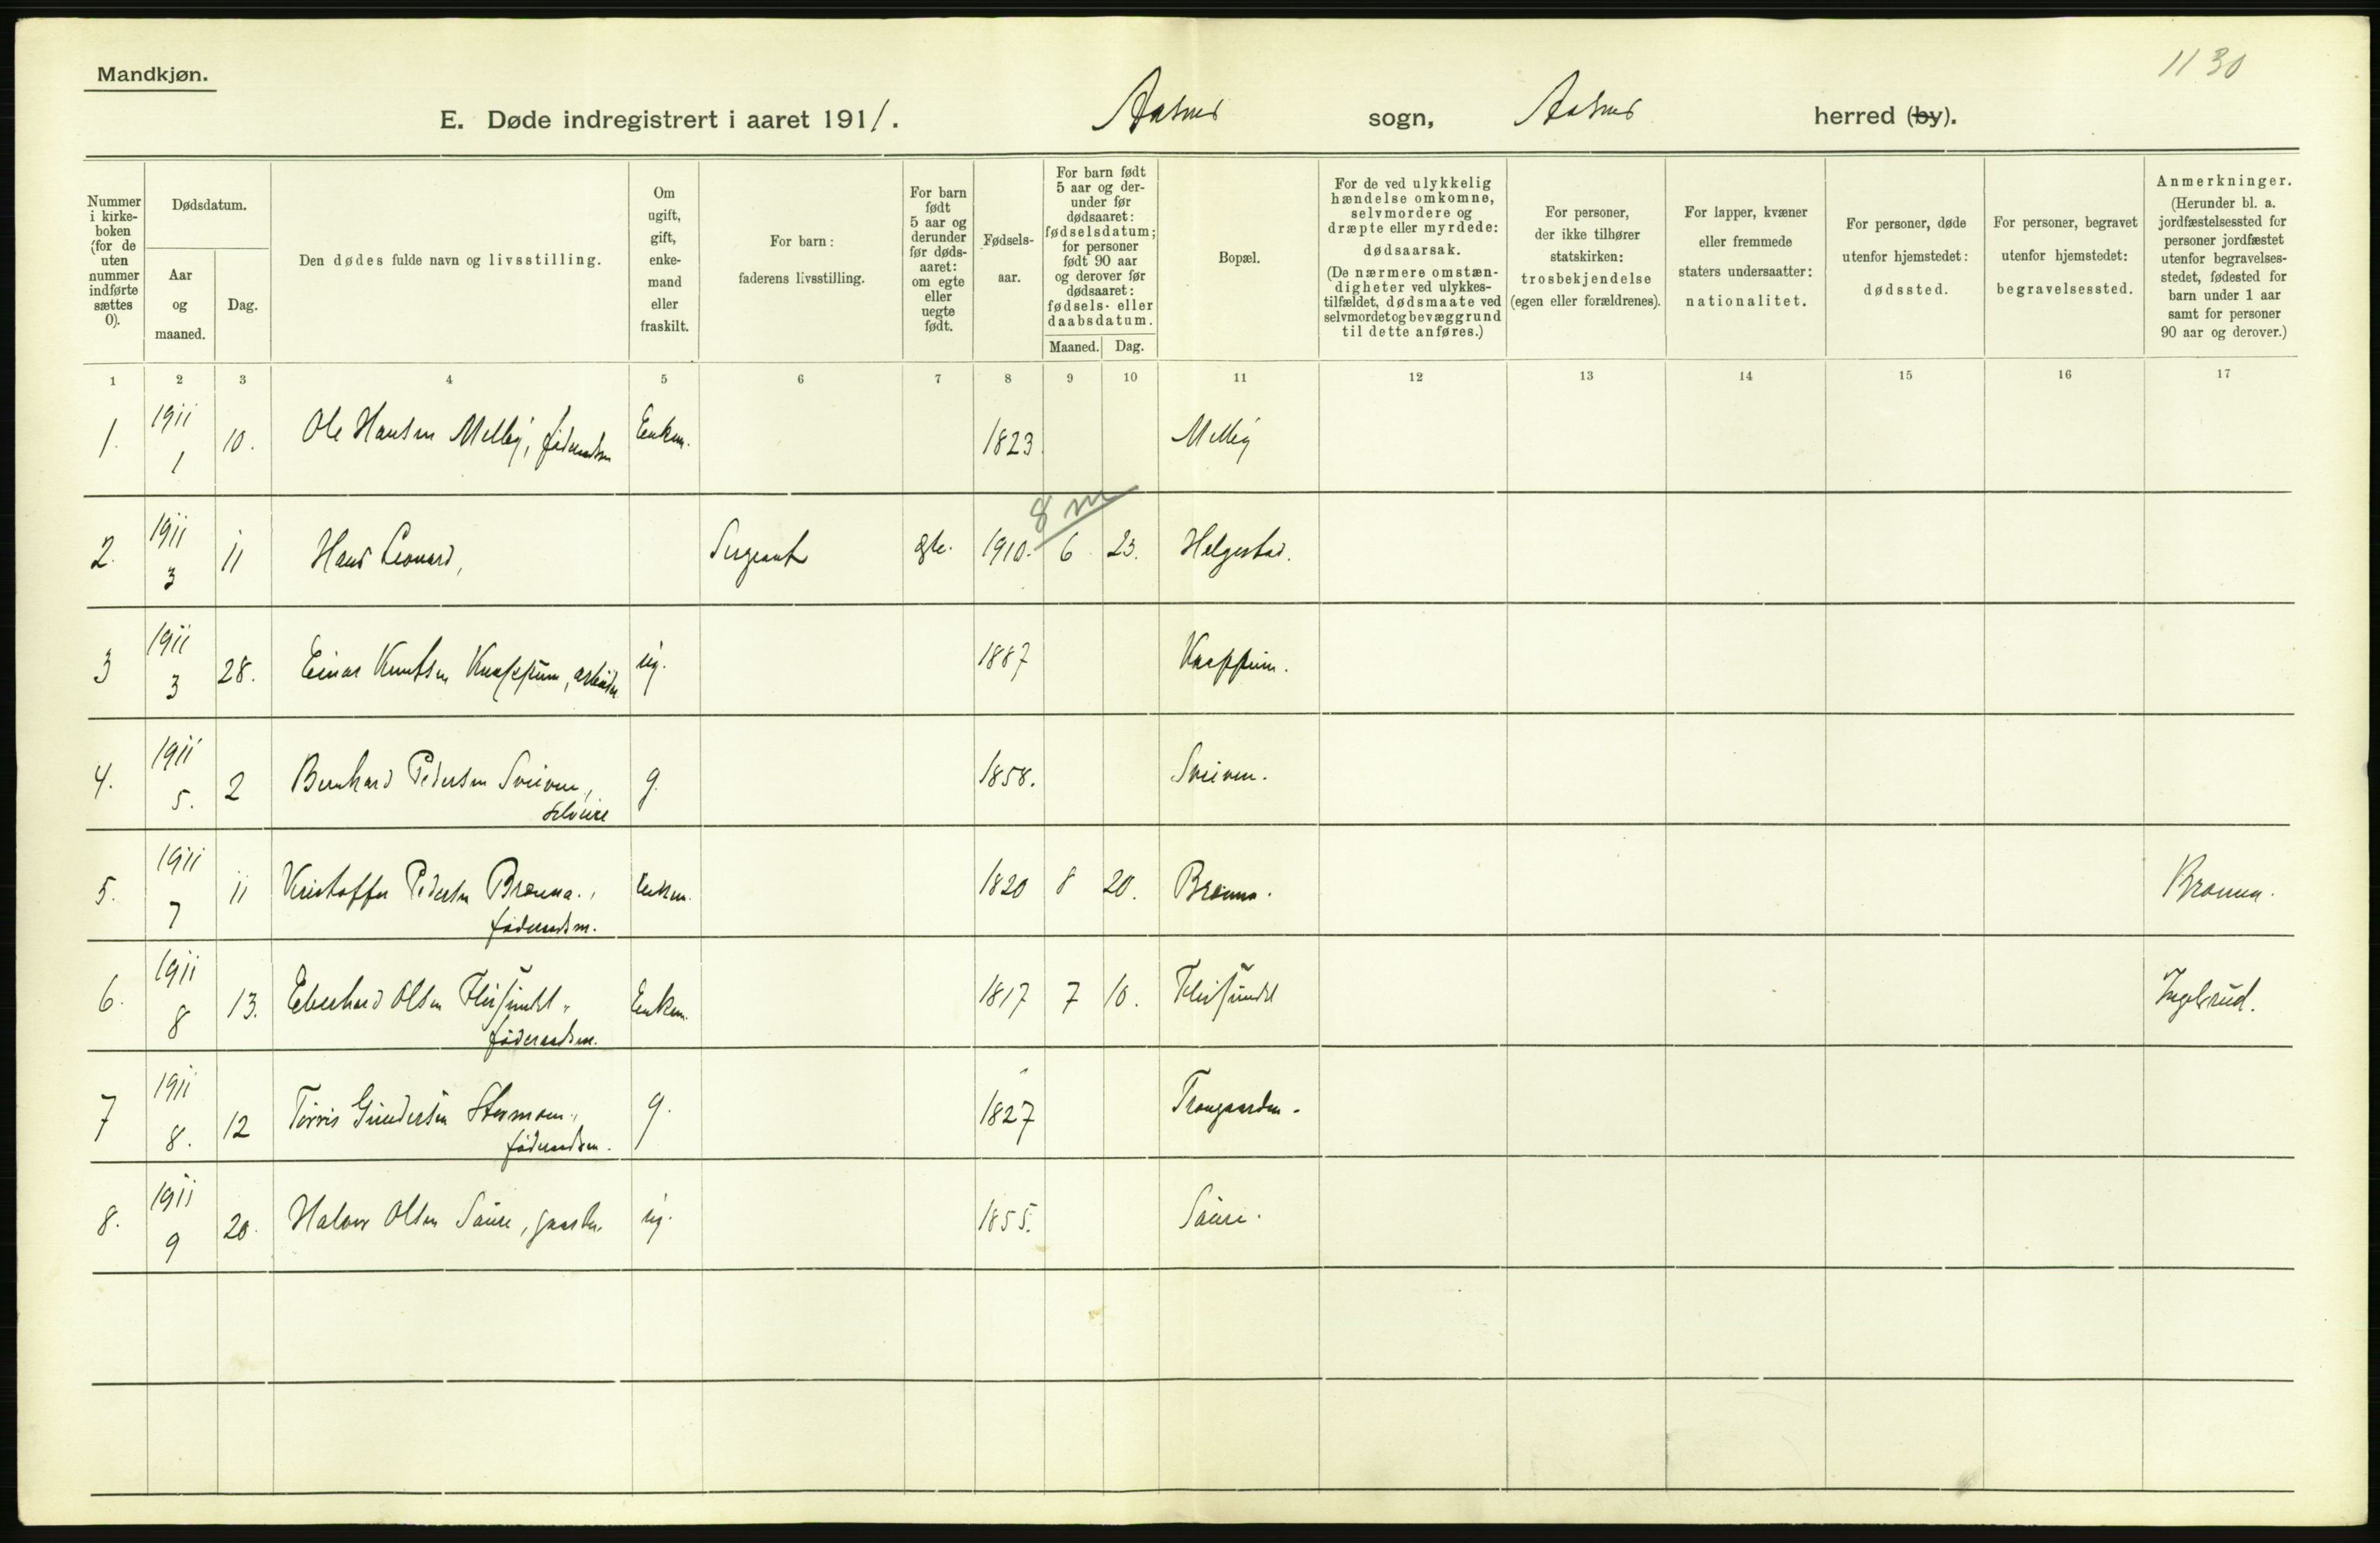 Mandkjøn.
1130
E. Døde indregistrert i aaret 1911. Aasnes sogn, Aasnes herred (by).
Nummer i kirke- boken (for de uten nummer indførte sættes 0).
Dødsdatum.
Aar og maaned.
Dag.
Den dødes fulde navn og livsstilling.
Om ugift, gift, enke- mand eller fraskilt.
For barn: faderens livsstilling.
For barn født 5 aar og derunder før døds- aaret: om egte eller uegte født.
Fødsels- aar.
For barn født 5 aar og der- under før dødsaaret: fødselsdatum; for personer født 90 aar og derover før dødsaaret: fødsels- eller daabsdatum.
Maaned. Dag.
Bopæl.
For de ved ulykkelig hændelse omkomne, selvmordere og dræpte eller myrdede: dødsaarsak. (De nærmere omstæn- digheter ved ulykkes- tilfældet, dødsmaate ved selvmordet og bevæggrund til dette anføres.)
For personer, der ikke tilhører statskirken: trosbekjendelse (egen eller forældrenes).
For lapper, kvæner eller fremmede staters undersaatter: nationalitet.
For personer, døde utenfor hjemstedet: dødssted.
For personer, begravet utenfor hjemstedet: begravelsessted.
Anmerkninger. (Herunder bl. a. jordfæstelsessted for personer jordfæstet utenfor begravelses- stedet, fødested for barn under 1 aar samt for personer 90 aar og derover.)
1 2 3 4 5 6 7 8 9 10 11 12 13 14 15 16 17
1. 1911 1 10. Ole Hansen Melby, føderaadsm Enkem. 1823. Melby
8 m
2. 1911 3 11 Hans Leonard, Sergeant egte. 1910. 6 23. Helgestad.
3 1911 3 28. Einar Knutsen Knappum, arbeider ug. 1887 Knappum.
4. 1911 5. 2 Bernhard Pedersen Sveiven, g. 1858. Sveiven.
selveier
5. 1911 7 11 Kristoffer Pedersen Brænna., Enkem. 1820 8 20. Brænna. Brænna.
føderaadsm.
6. 1911 8 13. Eberhard Olsen Flisundet, Enkem. 1817 7 10. Flisundet Ingelsrud.
føderaadsm.
7 1911 8. 12 Tørris Gundersen g. 1827 Trangaarden.
føderaadsm.
8. 1911 9 20. Halvor Olsen Saure, gaardbr. ug. 1855. Saure.